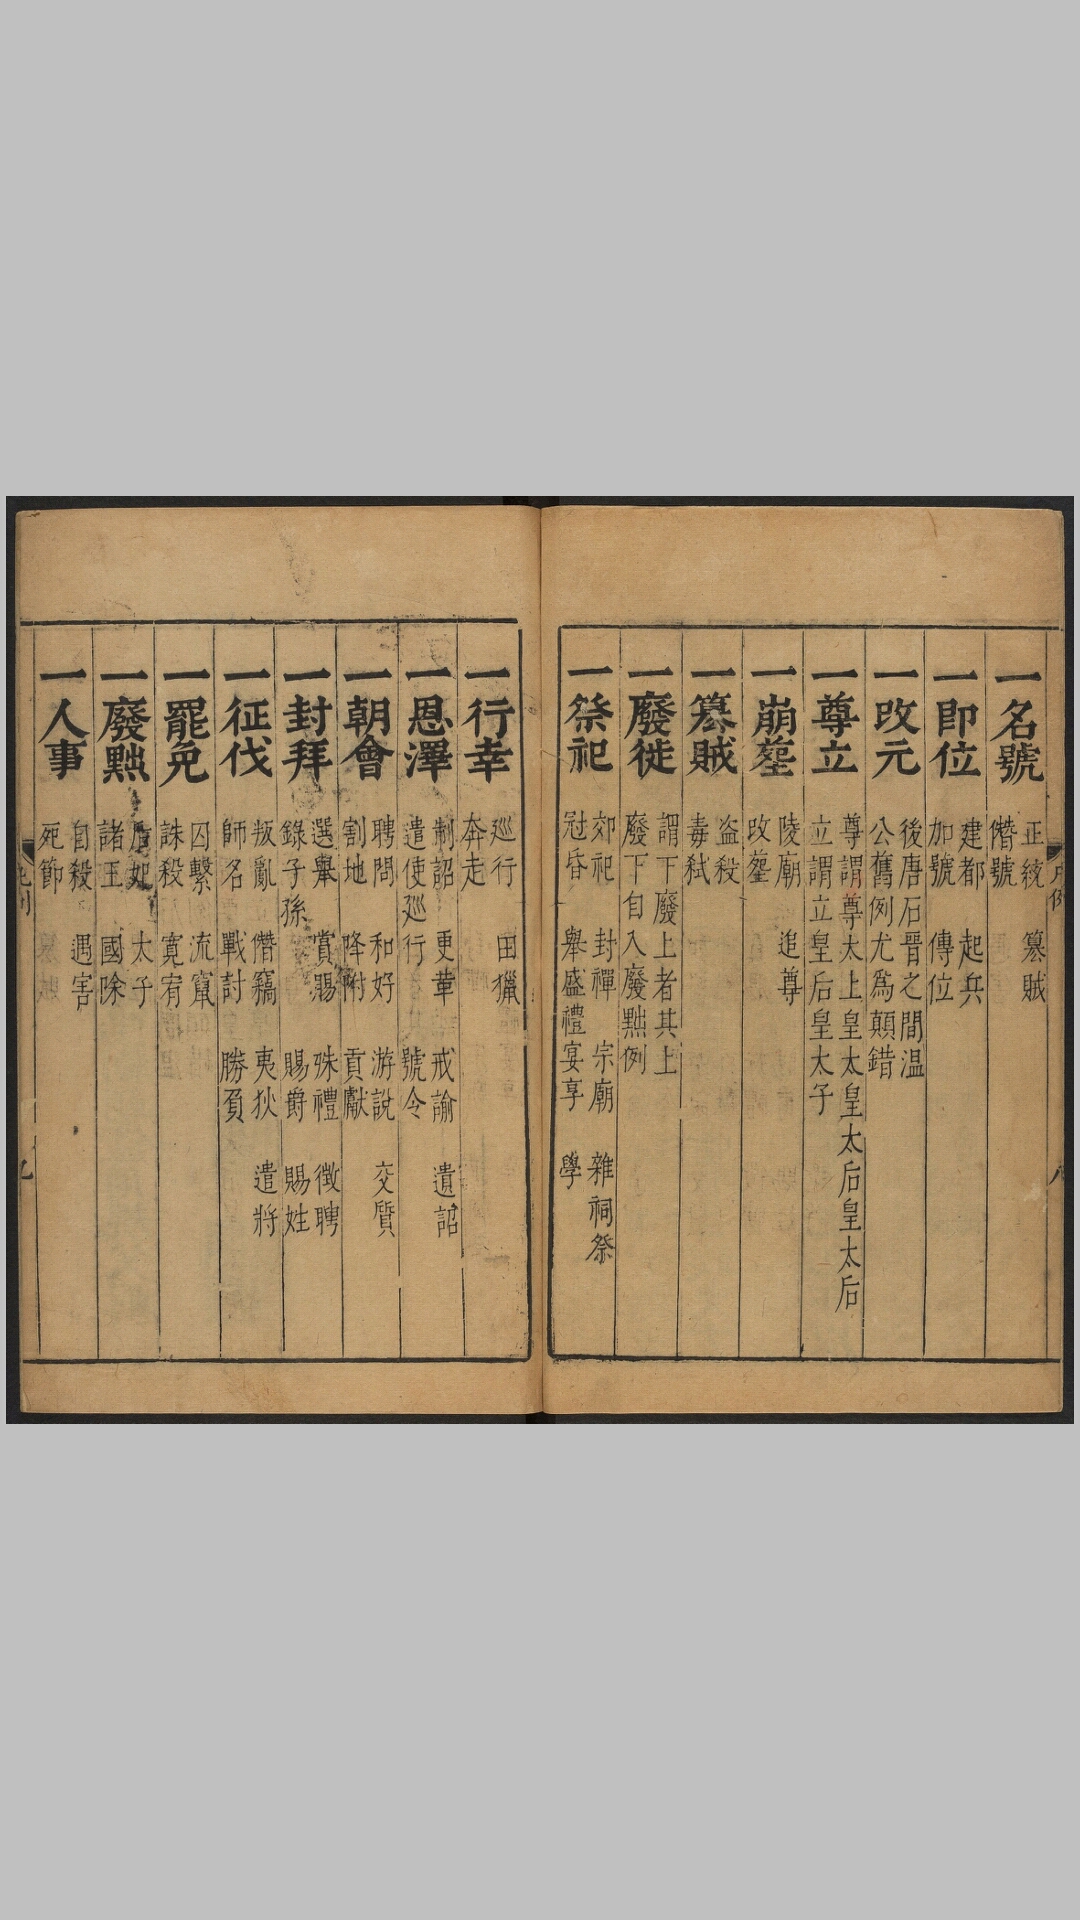 一名號 正統 篡賊
僭號
一即位 建都 起兵
加號 傳位
一改元 後唐石晉之間温
公舊例尤爲顛錯
一尊立 尊謂尊太上皇太皇太后皇太后
立謂立皇后皇太子
一崩塟 陵廟 追尊
改塟
一篡賊 盗殺
毒弑
一廢徙 謂下廢上者其上
廢下自入廢黜例
一祭祀 郊祀 封禪 宗廟 雜祠祭
冠昏 舉盛禮宴享 學
一行幸 巡行 田獵
奔走
一恩澤 制詔 更革 戒諭 遺詔
遣使巡行 號令
一朝會 聘問 和好 游說 交質
割地 降附 貢獻
一封拜 選舉 賞賜 殊禮 徵聘
錄子孫 賜爵 賜姓
一征伐 叛亂 僭竊 夷狄 遣將
師名 戰討 勝負
一罷免 囚繫 流竄
誅殺 寬宥
一廢黜 太子
諸王 國除
一人事 自殺 遇害
死節